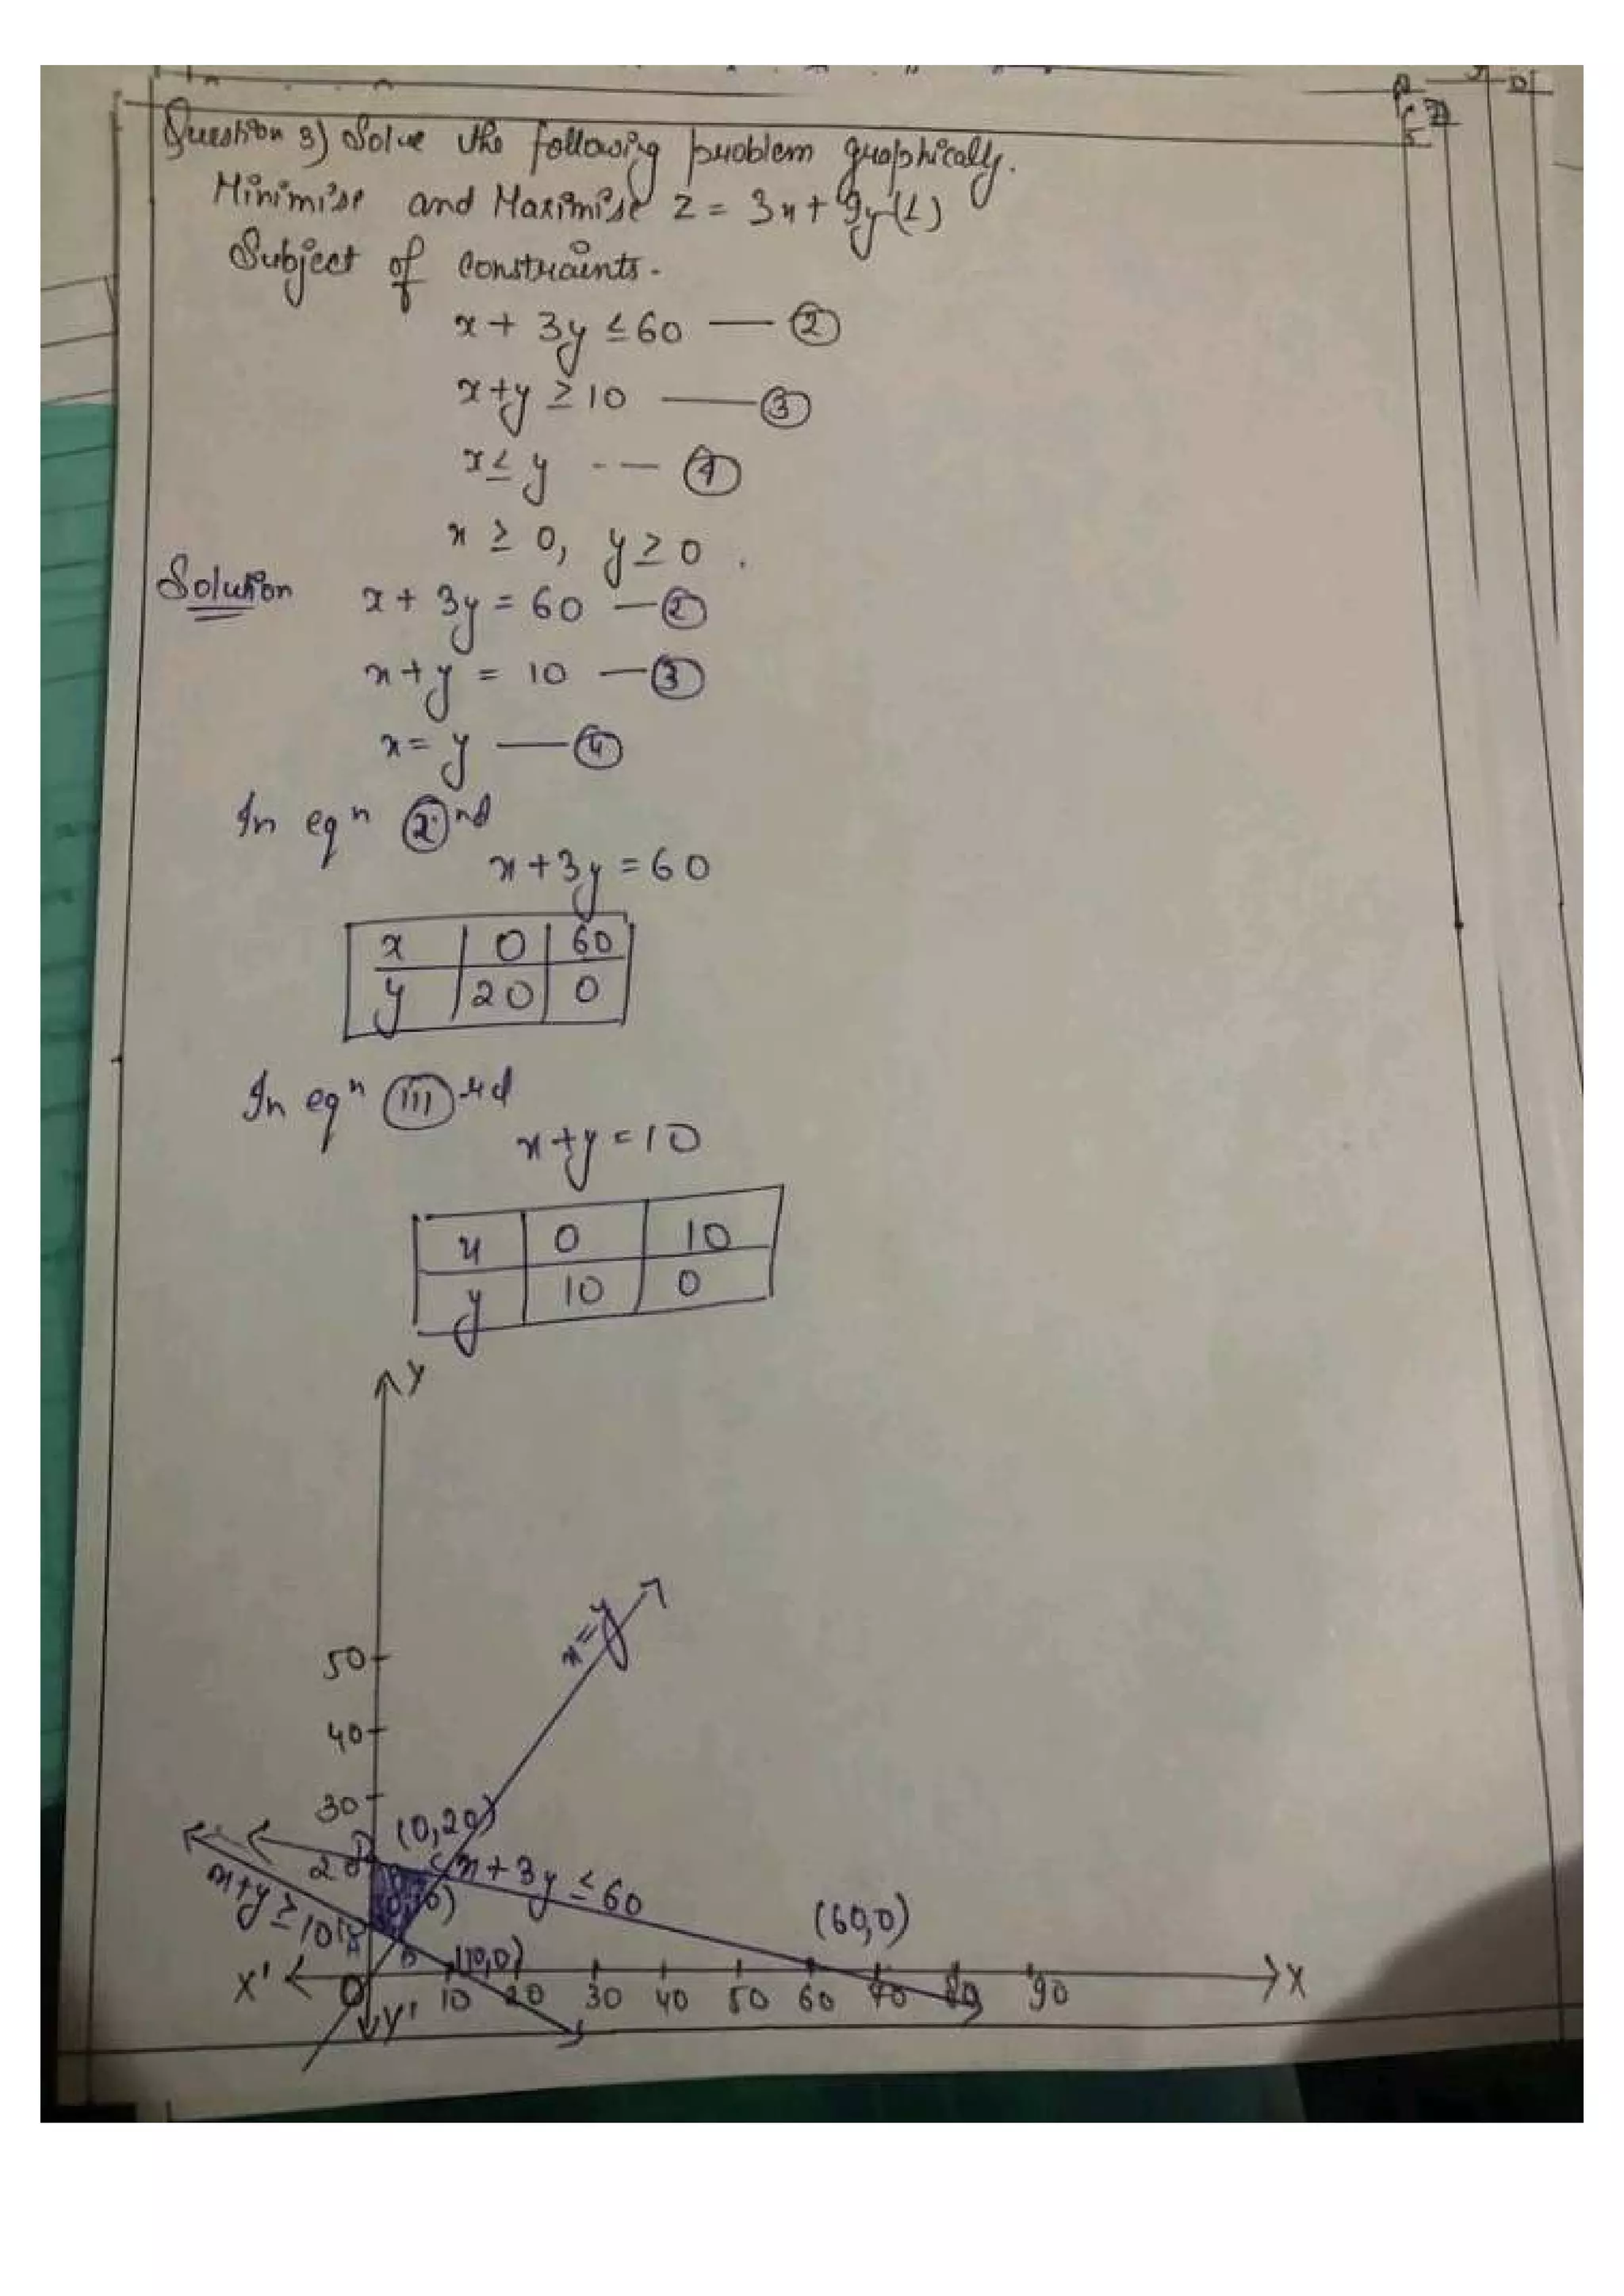 Question 3) Solve the following problem graphically.
Minimise and Maximise Z = 3x + 9y (1)
Subject of constraints.
x + 3y ≤ 60 — ②
x+y ≥ 10 — ③
x ≤ y -- — ④
x ≥ 0, y ≥ 0 .
Solution x + 3y = 60 — ②
x + y = 10 — ③
x = y — ④
In eqⁿ ② nd
x + 3y = 60
x | 0 | 60
y | 20 | 0
In eqⁿ (III) rd
x + y = 10
x | 0 | 10
y | 10 | 0
Y
x = y
50
40
30
(0,20)
20
x + 3y ≤ 60
x+y ≥ 10
(60,0)
(10,0)
X' O 10 20 30 40 50 60 70 80 90 X
Y'